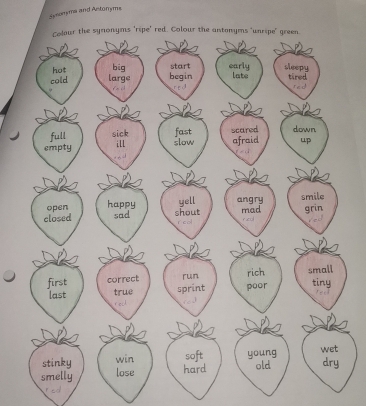 Synonyms and Antonyms
Colour the synonyms 'ripe' red. Colour the antonyms 'unripe' green.
hot
cold
big
large
red
start
begin
red
early
late
sleepy
tired
red
full
empty
sick
ill
red
fast
slow
scared
afraid
red
down
up
open
closed
happy
sad
yell
shout
red
angry
mad
red
smile
grin
red
first
last
correct
true
red
run
sprint
red
rich
poor
small
tiny
red
stinky
smelly
red
win
lose
soft
hard
young
old
wet
dry